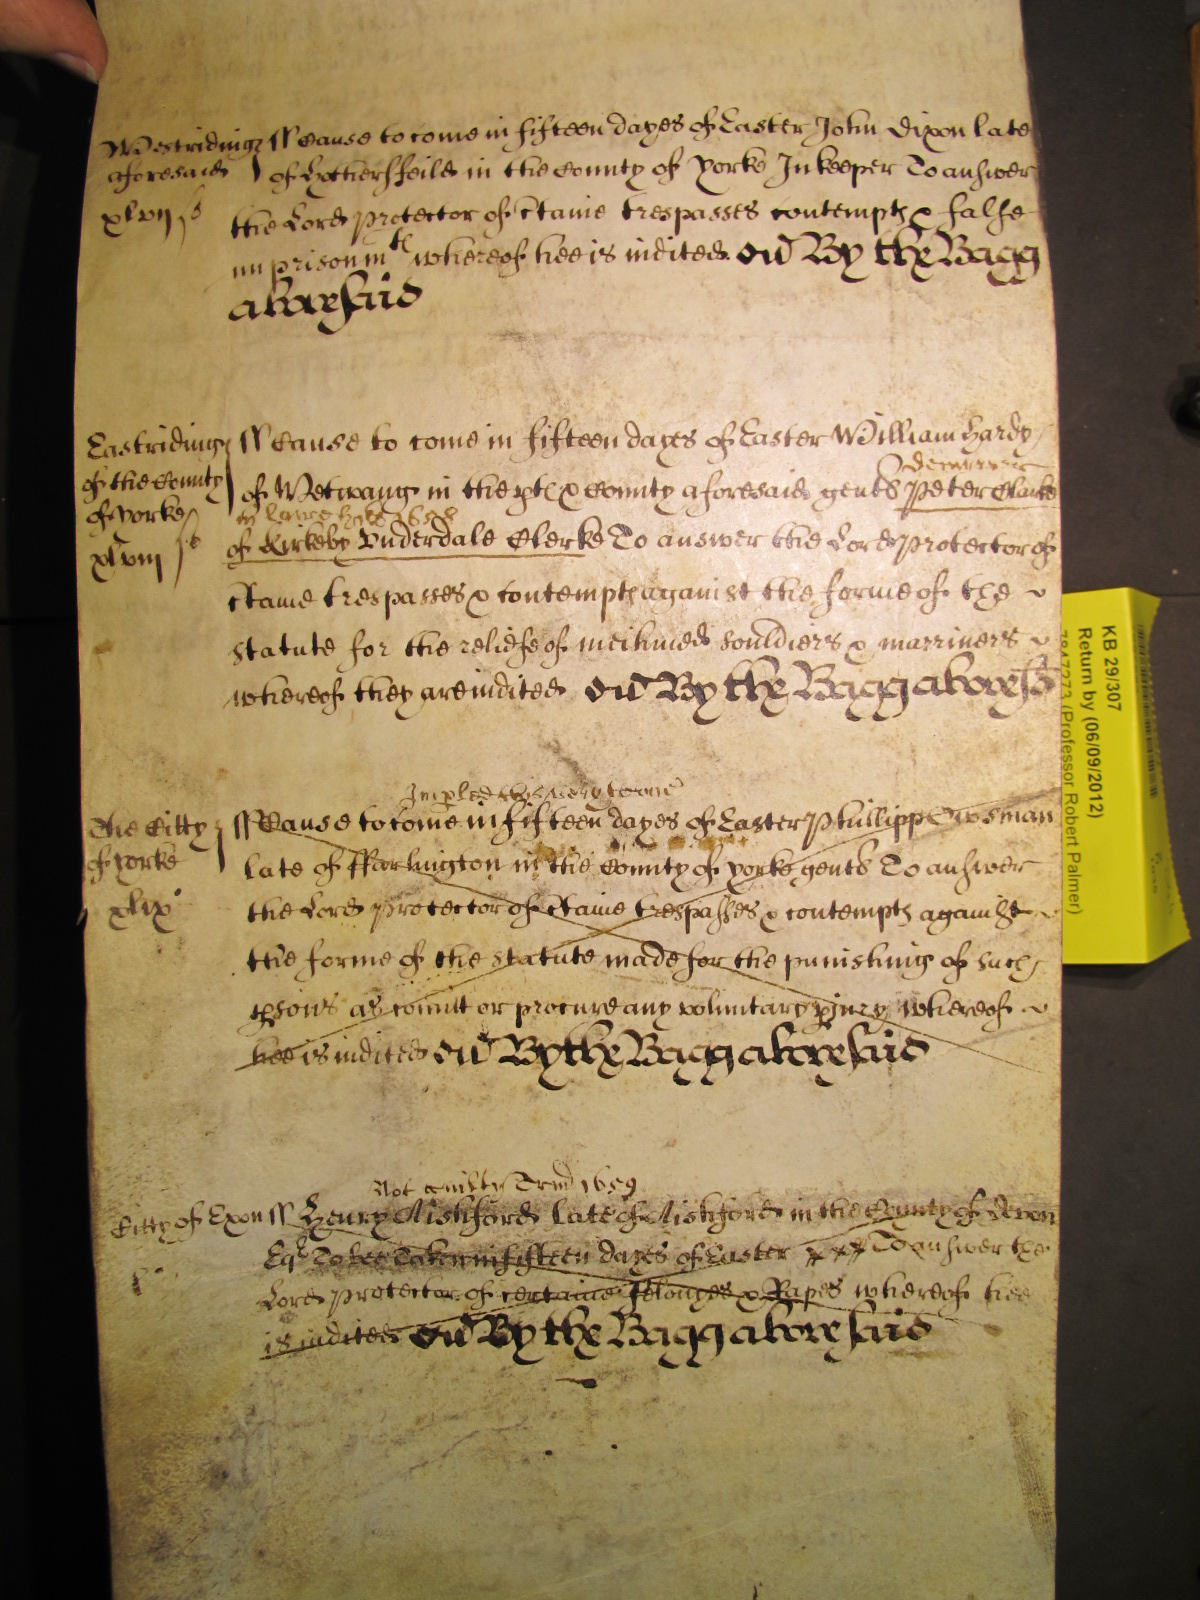 Westriding ss Cause to come in fifteen dayes of Easter John Dixon late
aforesaid of Hothersfeild in the County of Yorke Inkeeper To answer
xlvij
the Lord Protector of c'taine trespasses contempts & false
imprisonmts whereof hee is indited By the Bagg
aboresaid
Eastriding ss Cause to come in fifteen dayes of Easter William Hardy
of the County of Wetwang in the pts & County aforesaid gent & Peter Clarke
of Yorke
xlviij of Kirkeby Vnderdale Clerke To answer the Lord Protector of
c'taine trespasses & contempts against the forme of the
statute for the reliefe of meihmed souldiers & marriners
whereof they are indited By the Bagg aboresd
The Citty ss Cause to come in fifteen dayes of Easter Phillipp
of Yorke late of ffarlington in the County of Yorke gent To answer
xlix the Lord Protector of c'taine trespasses & contempts against
the forme of the statute made for the punishing of such
psons as comitt or procure any voluntary piury whereof
hee is indited By the Bagg aboresaid
Not guilty 1659
Citty of Exon ss Henry Aishford late of Aishford in the County of Devon
Esqr To bee Taken in fifteen dayes of Easter To answer the
Lord Protector of certaine felonyes & Rapes whereof hee
is indited By the Bagg aboresaid
KB 29/307
Return by (06/09/2012)
(Professor Robert Palmer)